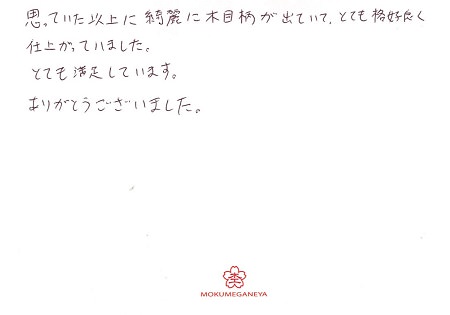 思っていた以上に綺麗に木目柄が出ていて、とても格好良く
仕上がっていました。
とても満足しています。
ありがとうございました。
MOKUMEGANEYA